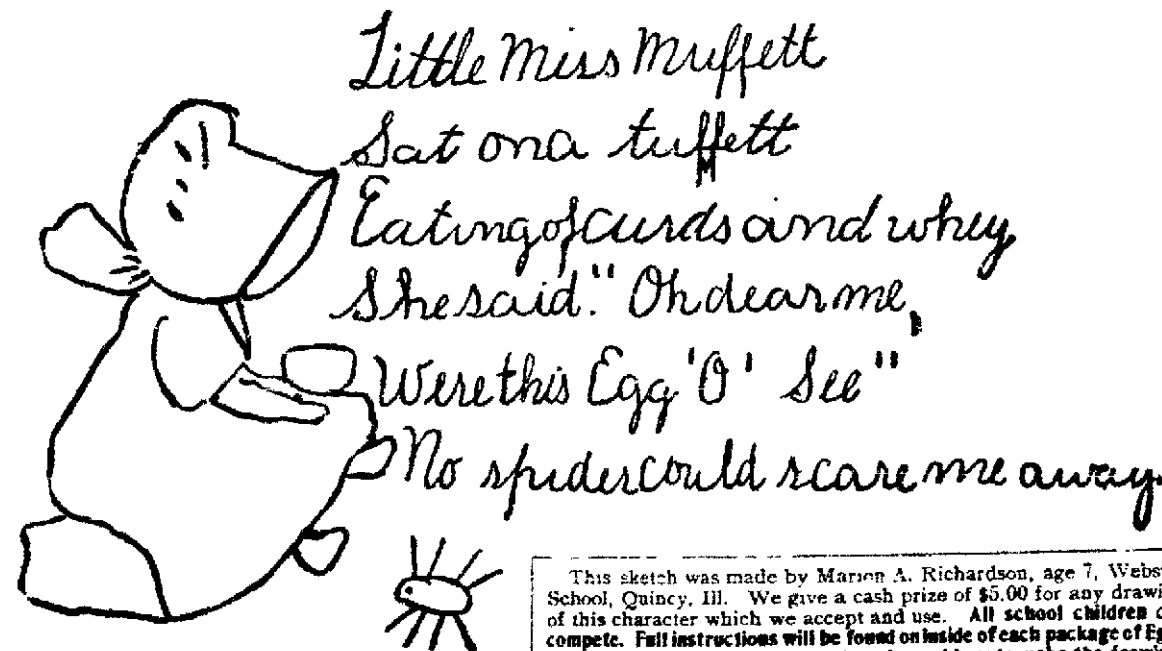 Little Miss Muffett
Sat on a tuffett
Eating of Curds and whey
She said." Oh dear me,
Were this Egg 'O' See"
No spider could scare me away.
This sketch was made by Marion A. Richardson, age 7, Webs
School, Quincy, Ill. We give a cash prize of $5.00 for any drawi
of this character which we accept and use. All school children c
compete. Full instructions will be found on inside of each package of Eg